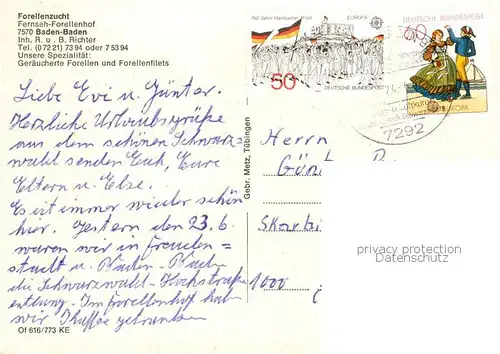 Forellenzucht
Fernseh-Forellenhof
7570 Baden-Baden
Inh. R. u. B. Richter
Tel. (07221) 7394 oder 75394
Unsere Spezialität:
Geräucherte Forellen und Forellenfilets
Liebe Evi u. Günter.
Herzliche Urlaubsgrüße
aus dem schönen Schwarz=
wald senden Euch, Eure
Eltern u. Else.
Es ist immer wieder schön
hier. Gestern den 23.6.
waren wir in Freuden=
stadt u. Baden-Baden
die Schwarzwald-Hochstraße
entlang. Im Forellenhof hab
wir Kaffee getrunken
Of 616/773 KE
Gebr. Metz, Tübingen
150 Jahre Hambacher Fest
EUROPA
50
DEUTSCHE BUNDESPOST
DEUTSCHE BUNDESPOST
60
EUROPA
7292
Herrn
Günt
Skarbi
1000
privacy protection
Datenschutz